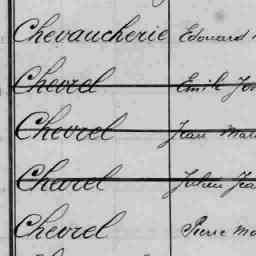 Chevaucherie Edouard
Chevrel Emile
Chevrel Jean Marie
Chevrel Julien Jean
Chevrel Pierre